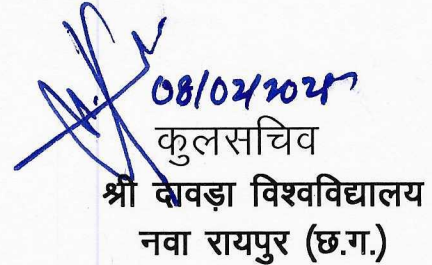 08/02/2025
कुलसचिव
श्री दावड़ा विश्वविद्यालय
नवा रायपुर (छ.ग.)